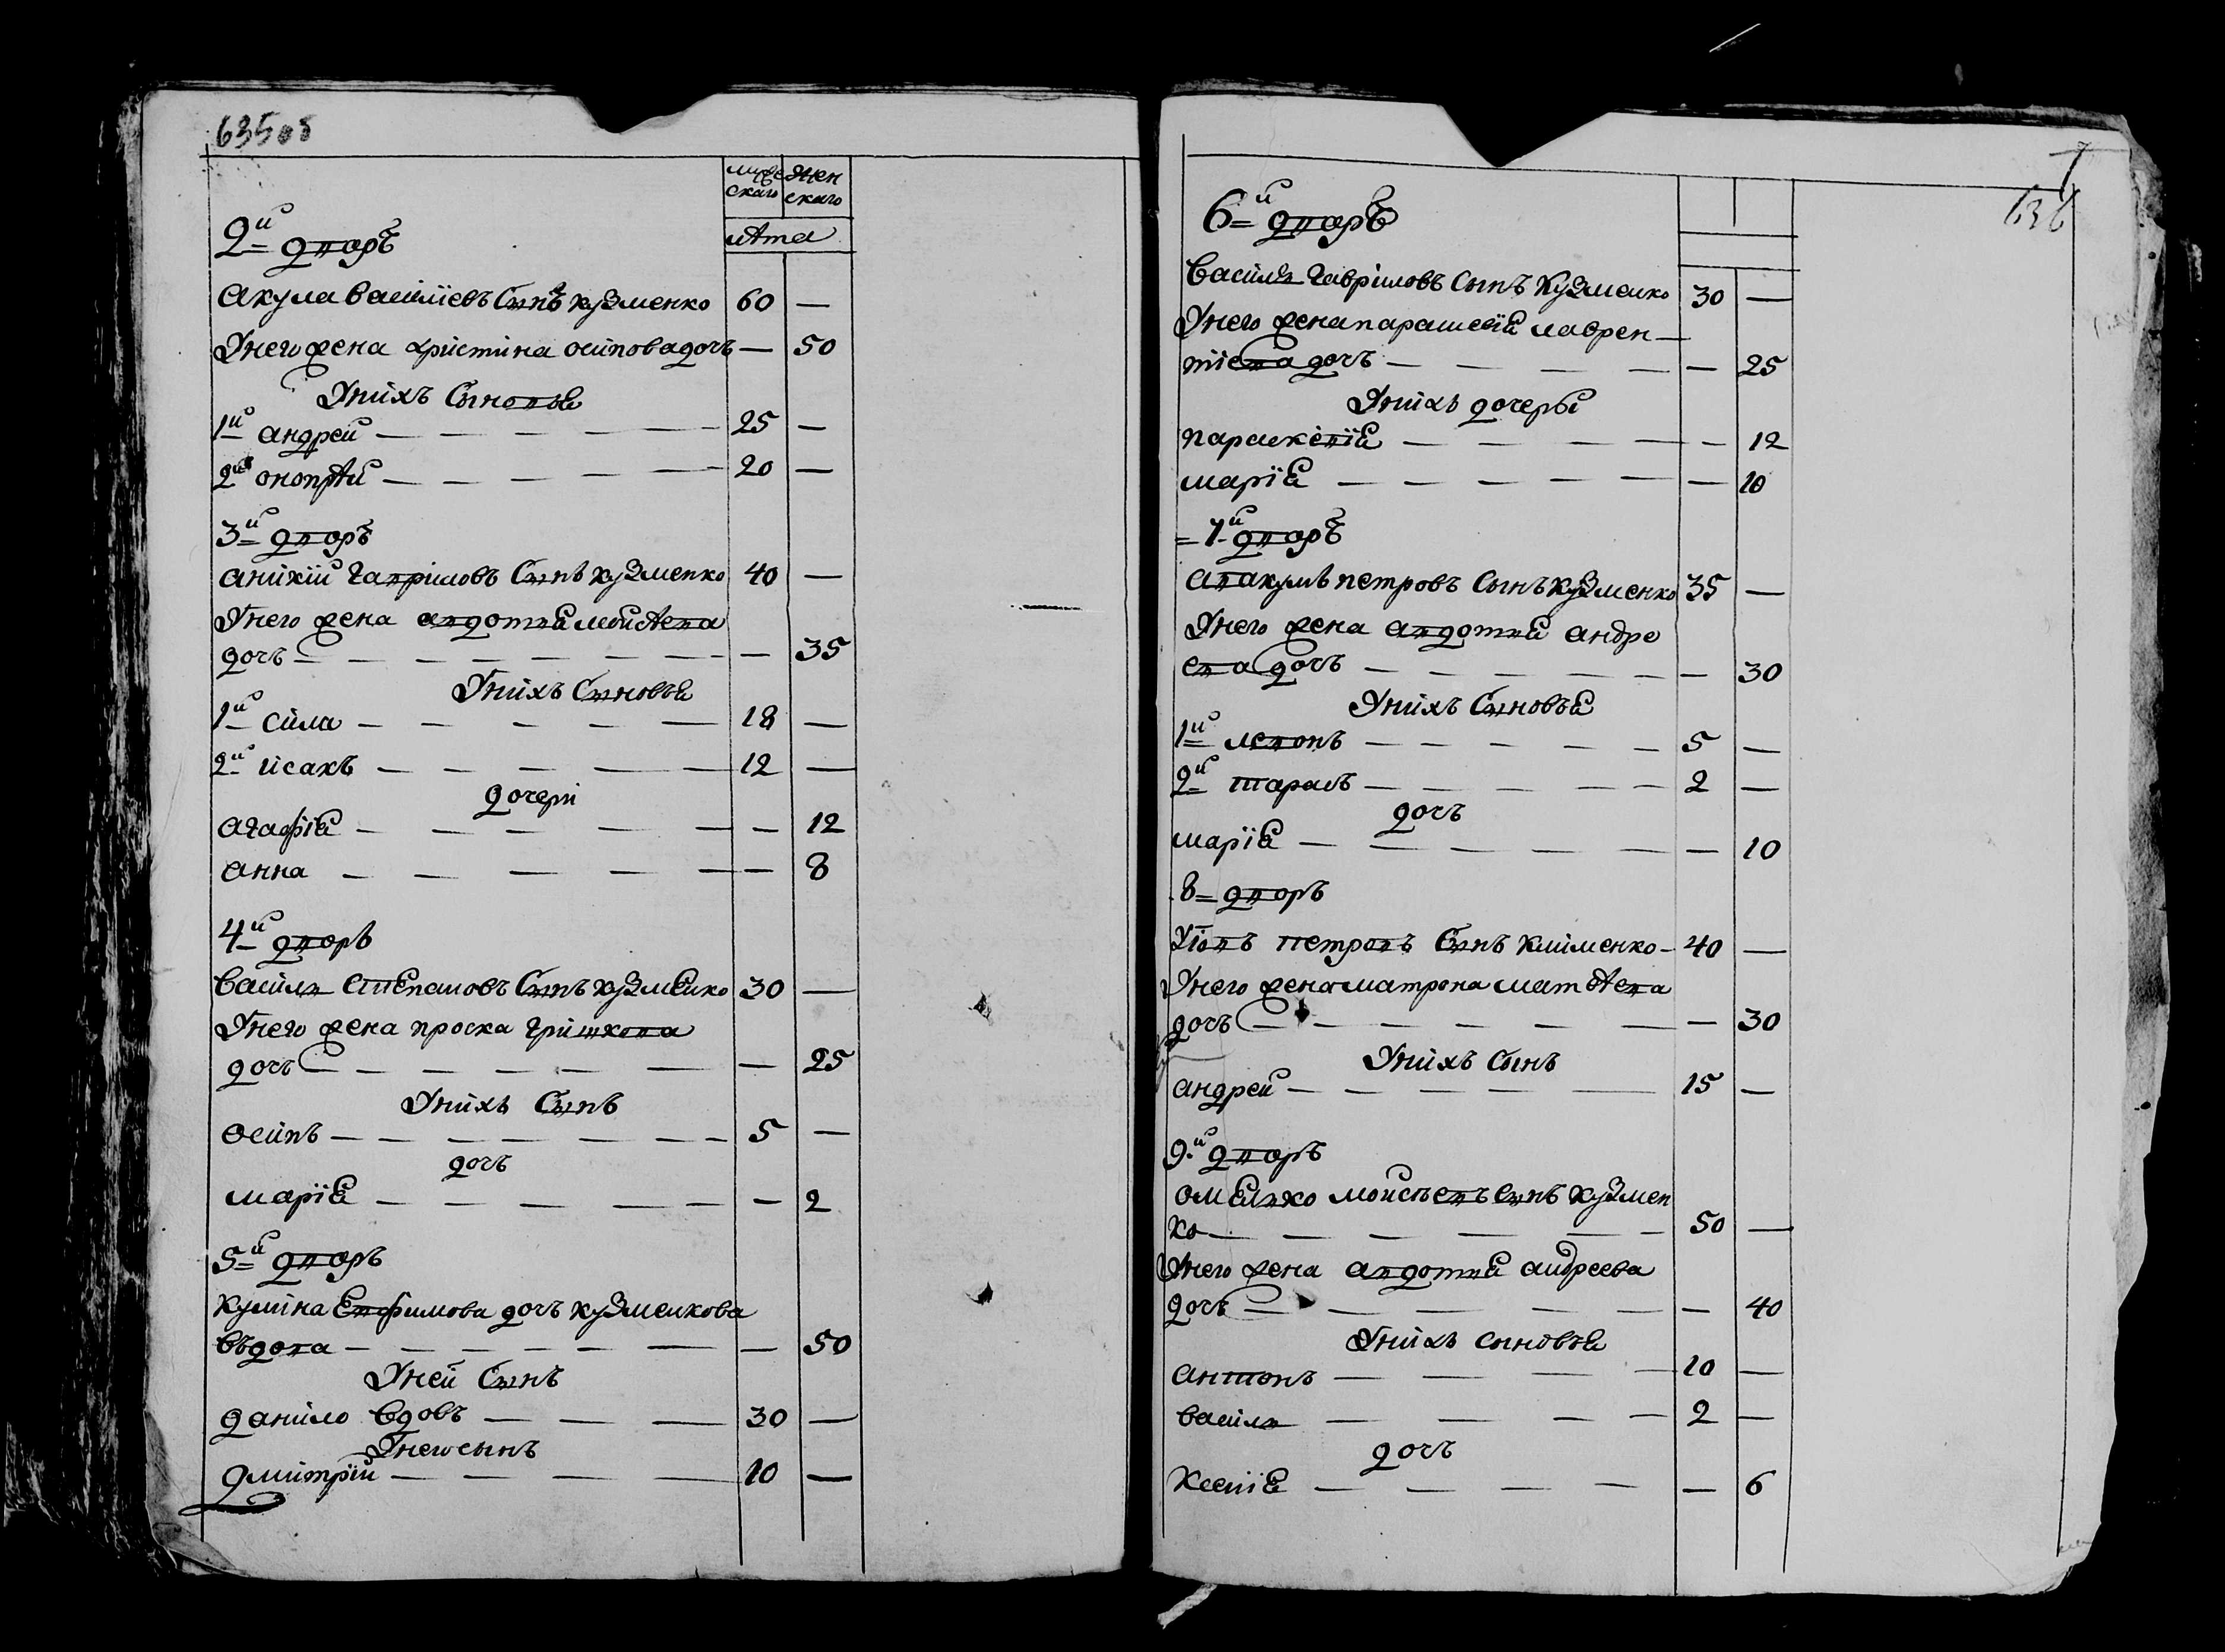 635об
мужескаго женскаго
лѣта
2й дворъ
акула василиевъ сынъ кузменко 60 —
У него жена христина осипова дочь — 50
У нихъ сыновья
1й андрей — 25 —
2й онопрѣй — 20 —
3й дворъ
аникій гавриловъ сынъ кузменко 40 —
У него жена авдотия мойсѣева
дочь — — 35
У нихъ сыновья
1й сила — 18 —
2й исакъ — 12 —
дочери
агафія — — 12
анна — — 8
4й дворъ
василь степановъ сынъ кузменко 30 —
У него жена проска гришкова
дочь — — 25
У нихъ сынъ
осипъ — 5 —
дочь
марія — — 2
5й дворъ
кулина евфимова дочь кузменкова
въдова — — 50
У ней сынъ
данило вдовъ — 30 —
У него сынъ
дмитрій — 10 —
636
6й дворъ
василь гавриловъ сынъ кузменко 30 —
У него жена парасцевія лаврен—
тиева дочь — — 25
У нихъ дочеры
параскевія — — 12
марія — — 10
7й дворъ
авакумъ петровъ сынъ кузменко 35 —
У него жена авдотия андре
ева дочь — — 30
У нихъ сыновья
1й левонъ — 5 —
2й тарасъ — 2 —
дочь
марія — — 10
8 дворъ
Іовъ петровъ сынъ клименко — 40 —
У него жена матрона матвѣева
дочь — — 30
У нихъ сынъ
андрей — 15 —
9й дворъ
омелько мойсѣевъ сынъ кузмен
ко — 50 —
У него жена авдотия андреева
дочь — — 40
У нихъ сыновья
антонъ — 10 —
василь — 2 —
дочь
ксения — — 6